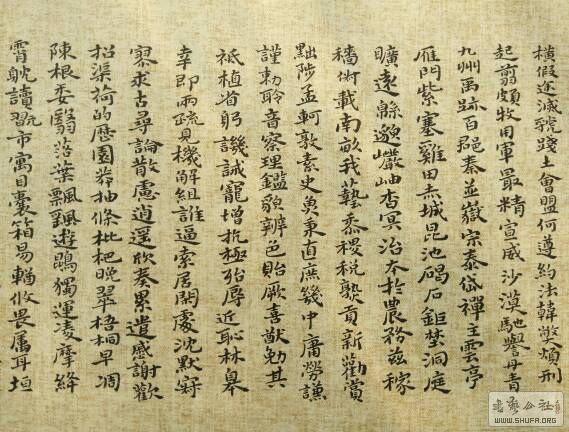 橫假途滅虢踐土會盟何遵約法韓弊煩刑
起翦頗牧用軍最精宣威沙漠馳譽丹青
九州禹跡百郡秦並嶽宗泰岱禪主雲亭
雁門紫塞雞田赤城昆池碣石鉅埜洞庭
曠遠緜邈巖岫杳冥治本於農務茲稼
穡俶載南畝我藝黍稷稅熟貢新勸賞
黜陟孟軻敦素史魚秉直庶幾中庸勞謙
謹勅聆音察理鑑貌辨色貽厥嘉猷勉其
祗植省躬譏誡寵增抗極殆辱近恥林皋
幸即兩疏見機解組誰逼索居閒處沈默寂
寥求古尋論散慮逍遙欣奏累遣感謝歡
招渠荷的歷園莽抽條枇杷晚翠梧桐早凋
陳根委翳落葉飄颻遊鵾獨運凌摩絳
霄耽讀翫市寓目囊箱易輶攸畏屬耳垣
書藝公社
WWW.SHUFA.ORG